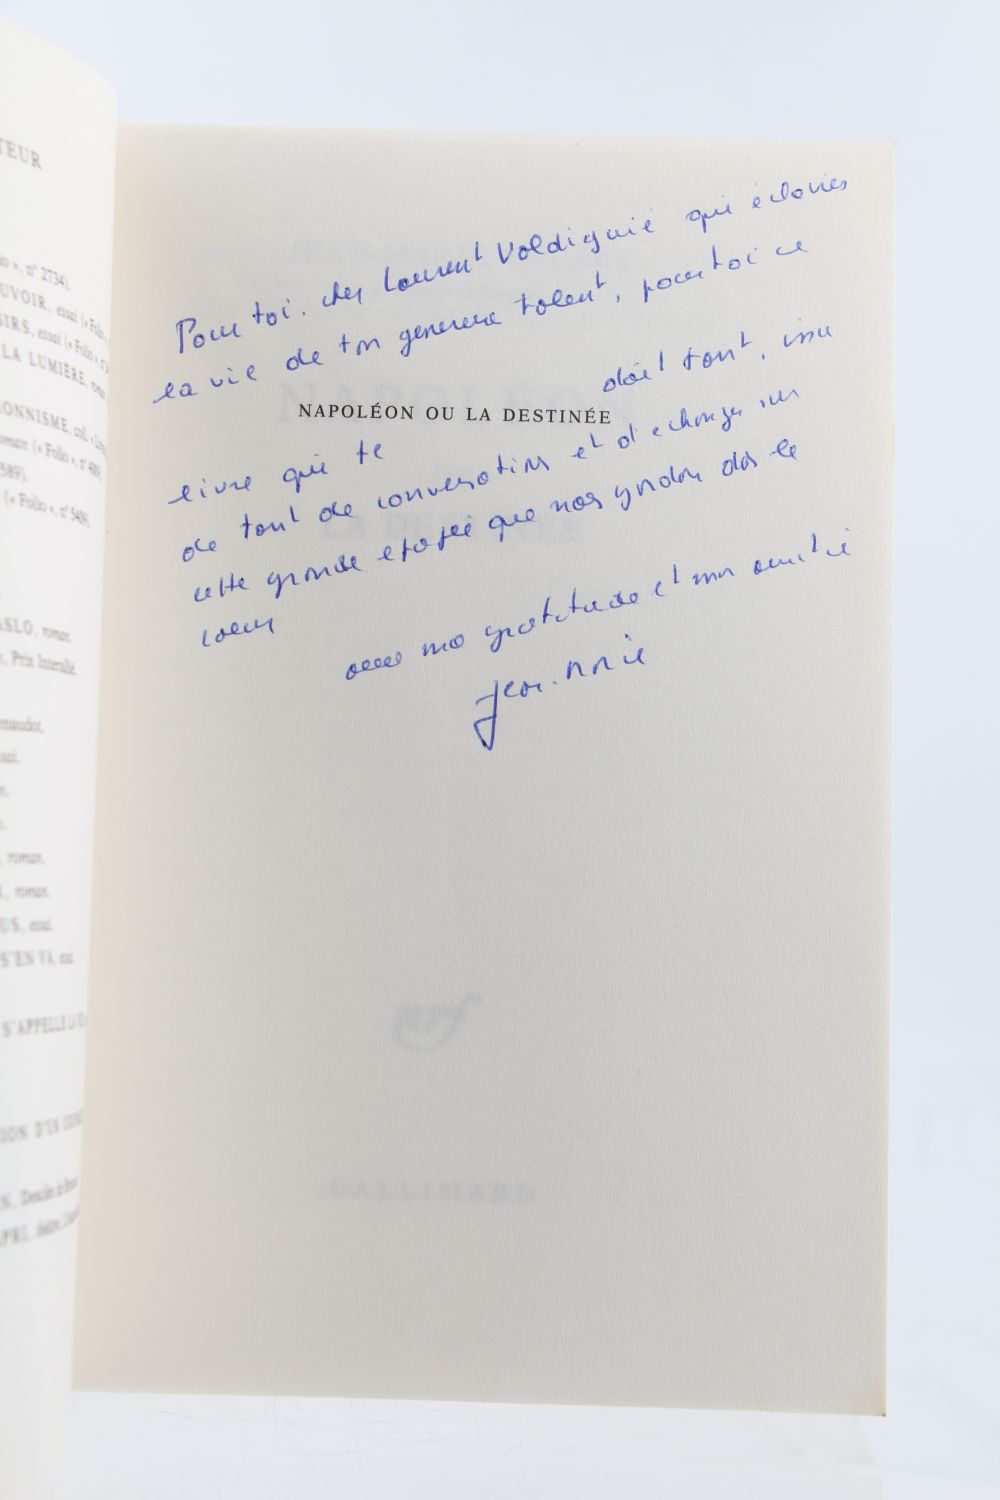 TEUR
io », n° 2734).
UVOIR, essai (« Folio »,
SIRS, essai (« Folio », n°
LA LUMIÈRE, roman
IONNISME, coll. « Livre
roman (« Folio », n° 4089).
589).
(« Folio », n° 5409).
ASLO, roman.
, Prix Interallié.
enaudot.
, roman.
L, roman.
US, essai.
S'EN VA, essai.
S'APPELLE LA
Pour toi, cher Laurent Valdiguié qui éclaires
la vie de ton généreux talent, pour toi ce
livre que te doit tant, issu
NAPOLÉON OU LA DESTINÉE
de tant de conversations et d'échanges sur
cette grande épopée que nous gardons dans le
coeur
avec ma gratitude et mon amitié
Jean-Marie
NAPOLÉON
LA DESTINÉE
nrf
GALLIMARD